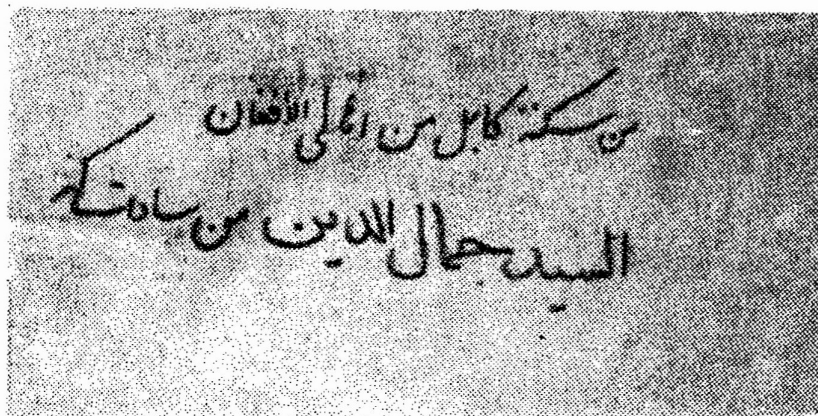 من سكنة كابل من اهالى الأفغان
السيد جمال الدين من سادات كنر